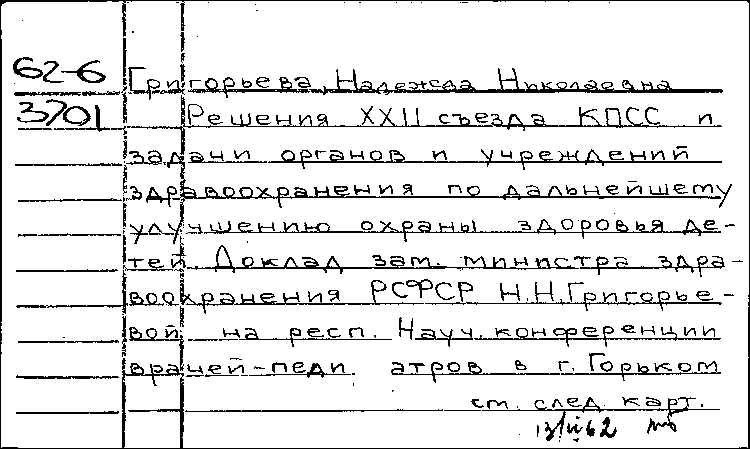 62-6 Григорьева, Надежда Николаевна
3701 Решения XXII съезда КПСС и
задачи органов и учреждений
здравоохранения по дальнейшему
улучшению охраны здоровья де-
тей. Доклад зам. министра здра-
воохранения РСФСР Н.Н.Григорье-
вой на респ. Науч. конференции
врачей-педи атров в г. Горьком
ст. след. карт.